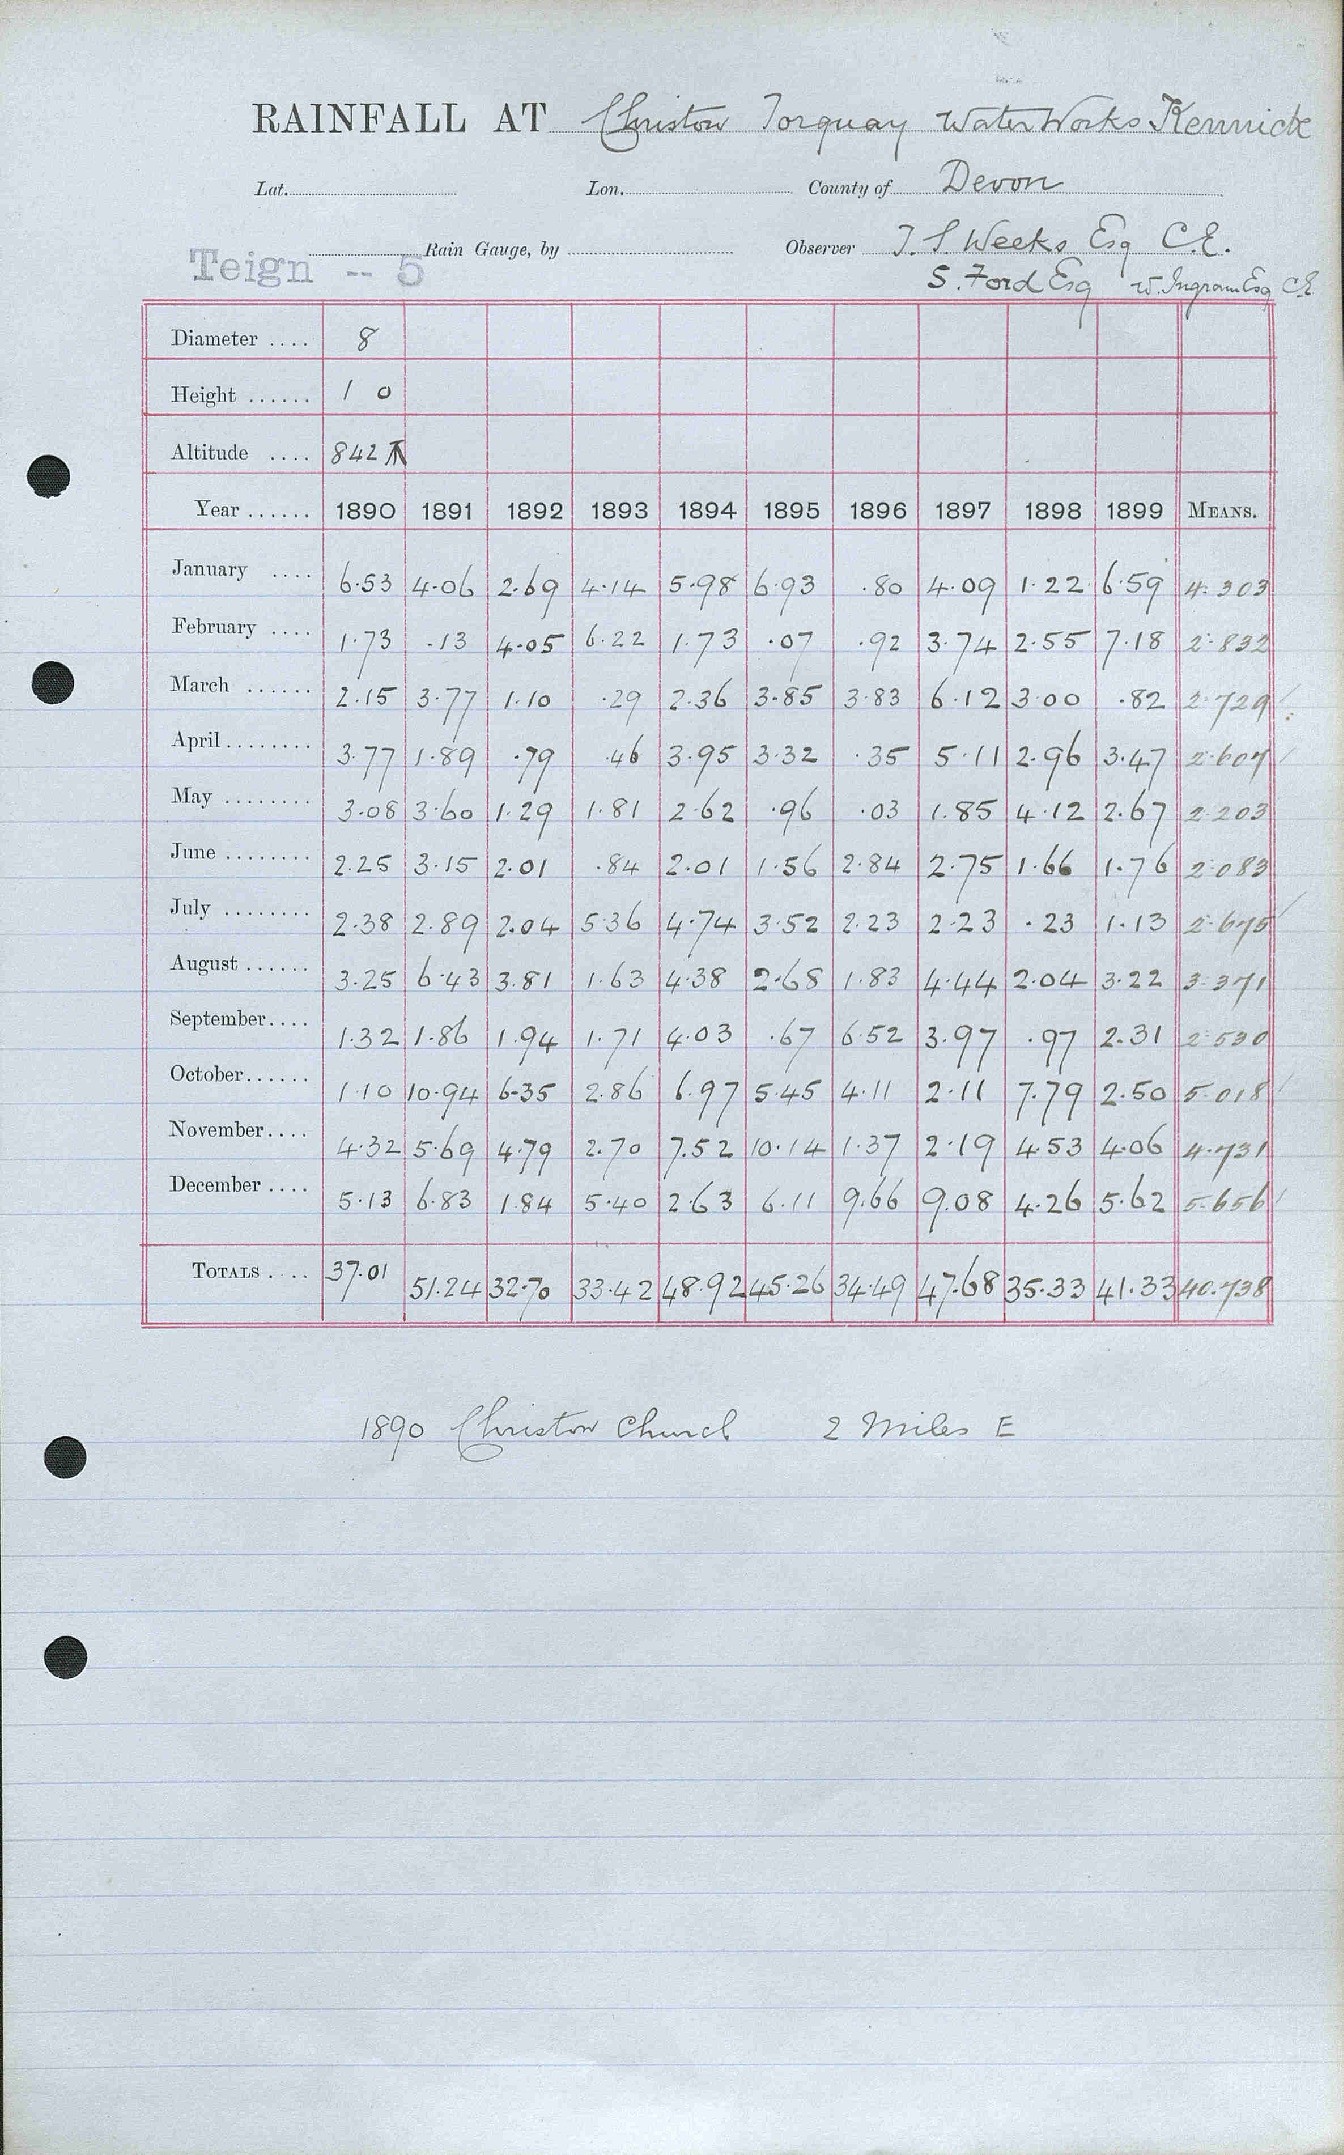 RAINFALL AT Christow Torquay Water Works Kennick
Lat. Lon. County of Devon
Teign -- 5 Rain Gauge, by Observer T. S. Weeks Esq C.E.
S. Ford Esq W. Ingram Esq CE
Diameter .... 8
Height ...... 1 0
Altitude .... 842
Year ...... 1890 1891 1892 1893 1894 1895 1896 1897 1898 1899 MEANS.
January .... 6.53 4.06 2.69 4.14 5.98 6.93 .80 4.09 1.22 6.59 4.303
February .... 1.73 .13 4.05 6.22 1.73 .07 .92 3.74 2.55 7.18 2.832
March ...... 2.15 3.77 1.10 .29 2.36 3.85 3.83 6.12 3.00 .82 2.729
April ........ 3.77 1.89 .79 .46 3.95 3.32 .35 5.11 2.96 3.47 2.607
May ........ 3.08 3.60 1.29 1.81 2.62 .96 .03 1.85 4.12 2.67 2.203
June ........ 2.25 3.15 2.01 .84 2.01 1.56 2.84 2.75 1.66 1.76 2.083
July ........ 2.38 2.89 2.04 5.36 4.74 3.52 2.23 2.23 .23 1.13 2.675
August ...... 3.25 6.43 3.81 1.63 4.38 2.68 1.83 4.44 2.04 3.22 3.371
September.... 1.32 1.86 1.94 1.71 4.03 .67 6.52 3.97 .97 2.31 2.530
October...... 1.10 10.94 6.35 2.86 6.97 5.45 4.11 2.11 7.79 2.50 5.018
November.... 4.32 5.69 4.79 2.70 7.52 10.14 1.37 2.19 4.53 4.06 4.731
December .... 5.13 6.83 1.84 5.40 2.63 6.11 9.66 9.08 4.26 5.62 5.656
TOTALS .... 37.01 51.24 32.70 33.42 48.92 45.26 34.49 47.68 35.33 41.33 40.738
1890 Christow Church 2 Miles E